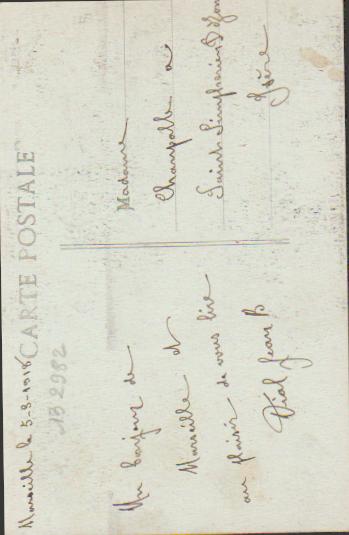 Marseille le 5-8-1918
CARTE POSTALE
13 2982
Un bonjour de
Marseille et
au plaisir de vous lire
Vial Jean B
Madame
Champalle à
Saint Symphorien d'Ozon
Isère